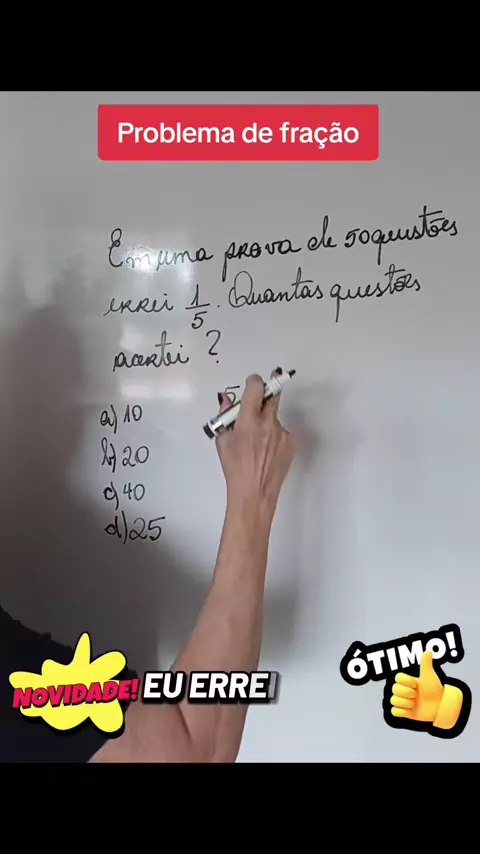 Problema de fração
Em uma prova de 50 questões
errei 1/5. Quantas questões
acertei?
5
a) 10
b) 20
c) 40
d) 25
NOVIDADE!
EU ERREI
ÓTIMO!